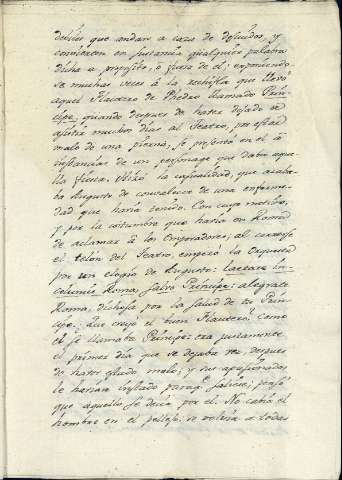 debiles que andan a caza de descuidos, y
convierten en sustancia qualquier palabra
dicha a proposito, ó fuera de el; exponiendo
se muchas veces á la rechifla que llevó
aquel Flautero de Phedro llamado Prin-
cipe, quando despues de haber dejado de
asistir muchos dias al Teatro, por estar
malo de una pierna, se presentó en el á
instancias de un personage que daba aque
lla fiesta. Hizo la casualidad, que acaba
ba Augusto de convalecer de una enferme
dad que havia tenido. Con cuyo motivo,
y por la costumbre que havia en Roma
de aclamar á los Emperadores; al correrse
el telon del Teatro, empezó la Orquesta
por un elogio de Augusto: Laetare In-
columis Roma, salvo Principe: alegrate
Roma, dichosa por la salud de tu Prin-
cipe. Que creyó el buen Flautero? Como
el se llamaba Principe: era justamente
el primer dia que se dejaba ver, despues
de haber estado malo; y sus apasionados
le havian instado para saliese, pensó
que aquello se decia por el. No cabia el
hombre en el pellejo: se volvia a todas